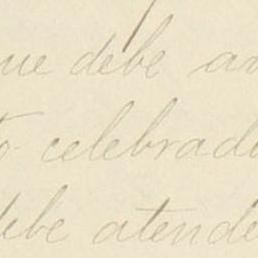 que debe an
to celebrado
debe atende